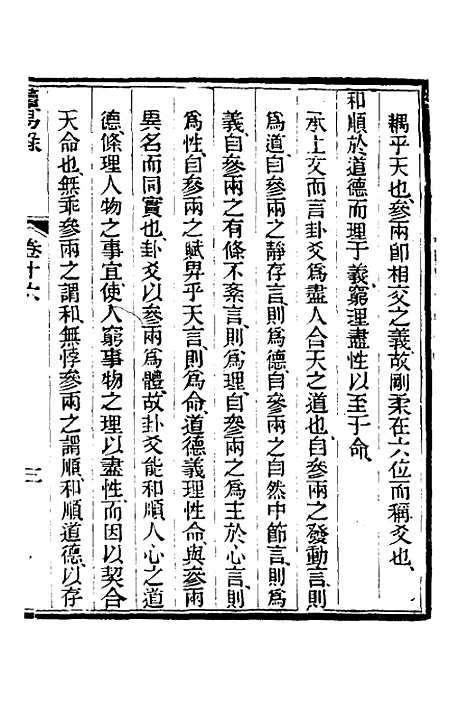 耦乎天也、參兩卽相交之義、故剛柔在六位而稱爻也、
和順於道德而理于義、窮理盡性以至于命、
承上文而言卦爻爲盡人合天之道也、自參兩之發動言、則
爲道、自參兩之靜存言、則爲德、自參兩之自然中節言、則爲
義、自參兩之有條不紊言、則爲理、自參兩之爲主於心言、則
爲性、自參兩之賦畀乎天言、則爲命、道德義理性命、與參兩
異名而同實也、卦爻以參兩爲體、故卦爻能和順人心之道
德、條理人物之事宜、使人窮事物之理以盡性、而因以契合
天命也、無乖參兩之謂和、無悖參兩之謂順、和順道德、以存
易
卷十六
三